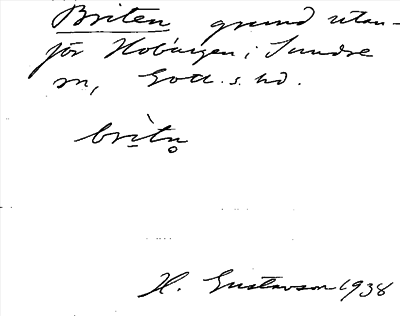 Briten grund utan-
för Hoburgen i Sundre
sn, Gotl. s. hd.
brìtn̥
H. Gustavson 1938